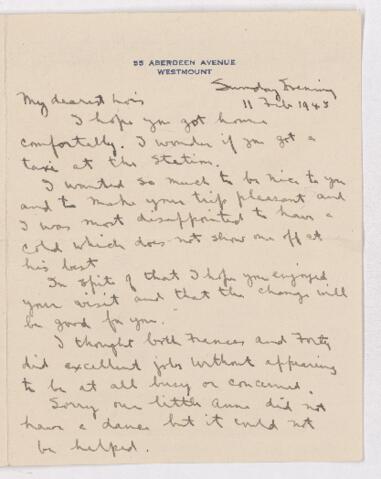 55 ABERDEEN AVENUE
WESTMOUNT
Sunday Evening
11 Feb 1945
My dearest Lois
I hope you got home
comfortably. I wonder if you got a
taxi at the Station.
I wanted so much to be nice to you
and to make your trip pleasant and
I was most disappointed to have a
cold which does not show one off at
his best
In spite of that I hope you enjoyed
your visit and that the change will
be good for you.
I thought both Frances and
did excellent jobs without appearing
to be at all busy or concerned.
Sorry our little Anne did not
have a dance but it could not
be helped.